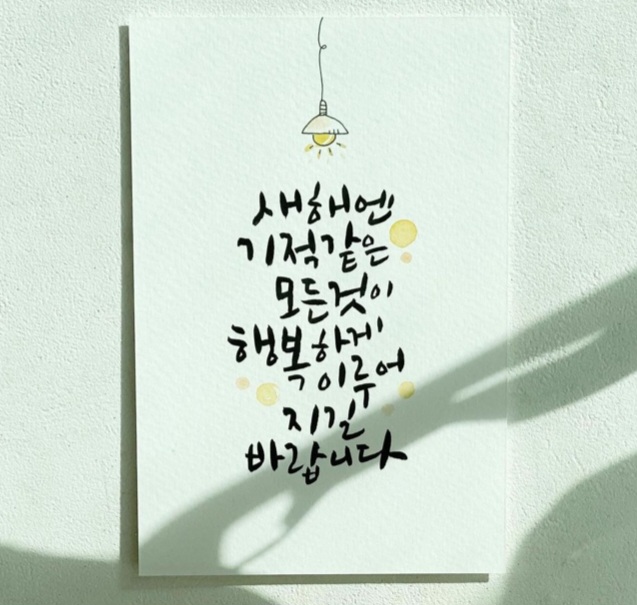 새해엔
기적같은
모든것이
행복하게
이루어
지길
바랍니다